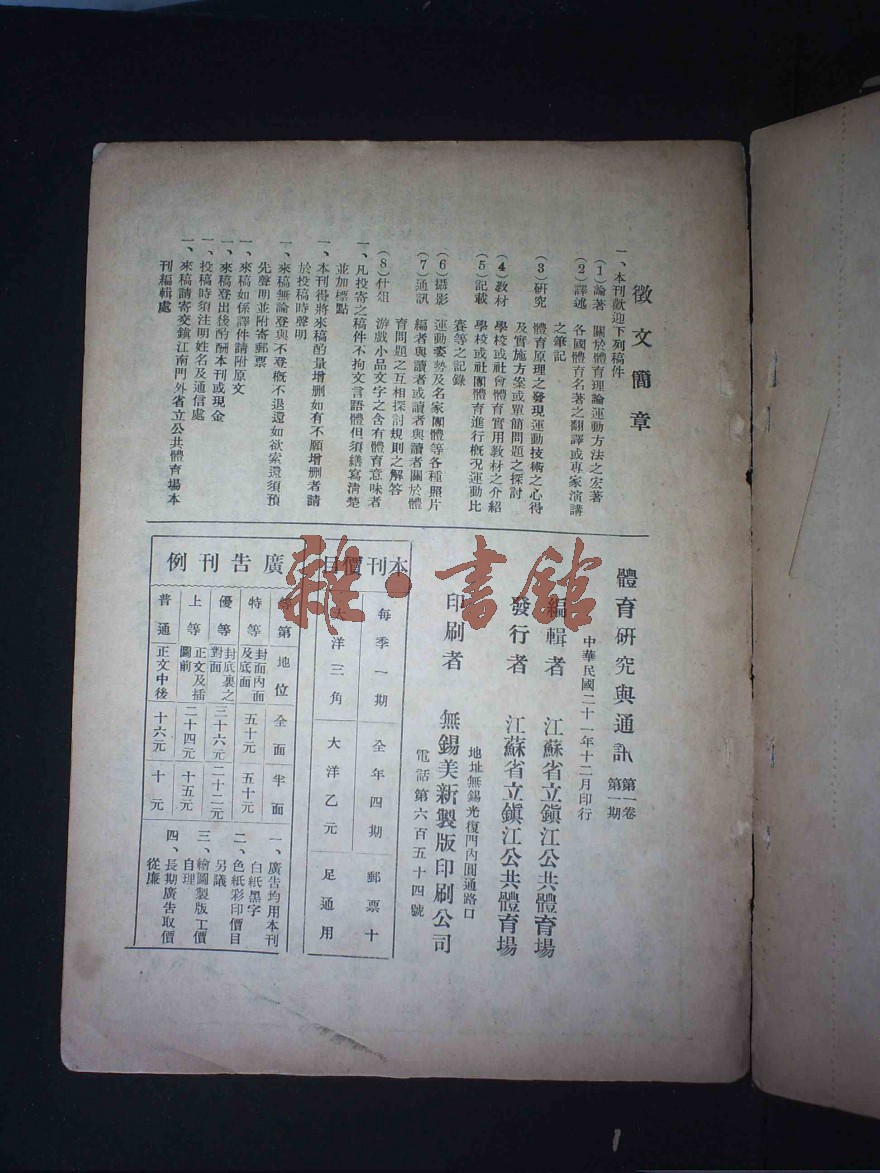 徵文簡章
一、本刊歡迎下列稿件
(1)論著 關於體育理論運動方法之宏著
(2)譯述 各國體育名著之翻譯或專家演講
之筆記
(3)研究 體育原理之發現運動技術之心得
及實施方案或單簡問題之探討
(4)教材 學校或社會體育實用教材之介紹
(5)記載 學校或社團體育進行概况運動比
賽等之記錄
(6)攝影 運動姿勢及名家團體等各種照片
(7)通訊 編者與讀者或讀者與讀者關於體
育問題之互相探討規則之解答
(8)什俎 游戲小品文字之含有體育意味者
一、凡投寄之稿件不拘文言語體但須繕寫清楚
並加標點
一、本刊得將來稿酌量增删如有不願增删者請
於投稿時聲明
一、來稿無論登與不登概不退還如欲索還須預
先聲明並附寄郵票
一、來稿如係譯件請附原文
一、來稿登出後酌酬本刊或現金
一、投稿時須注明姓名及通信處
一、來稿請寄交鎮江南門外省立公共體育場本
刊編輯處
體育研究與通訊 第一卷
第一期
中華民國二十一年十二月印行
編輯者 江蘇省立鎮江公共體育場
發行者 江蘇省立鎮江公共體育場
地址無錫光復門內圓通路口
印刷者 無錫美新製版印刷公司
電話第六百五十四號
本刊價目
每季一期 全年四期 郵票十
大洋三角 大洋乙元 足通用
廣告刊例
等第 地位 全面 半面
特等 封面內面及底面 五十元 五十元
優等 封底裏之對面 三十六元 二十二元
上等 正文及插圖前 二十四元 十五元
普通 正文中後 十六元 十元
一、廣告均用本刊
白紙黑字
二、色紙彩印價目
另議
三、繪圖製版工價
自理
四、長期廣告取價
從廉
雜·書館